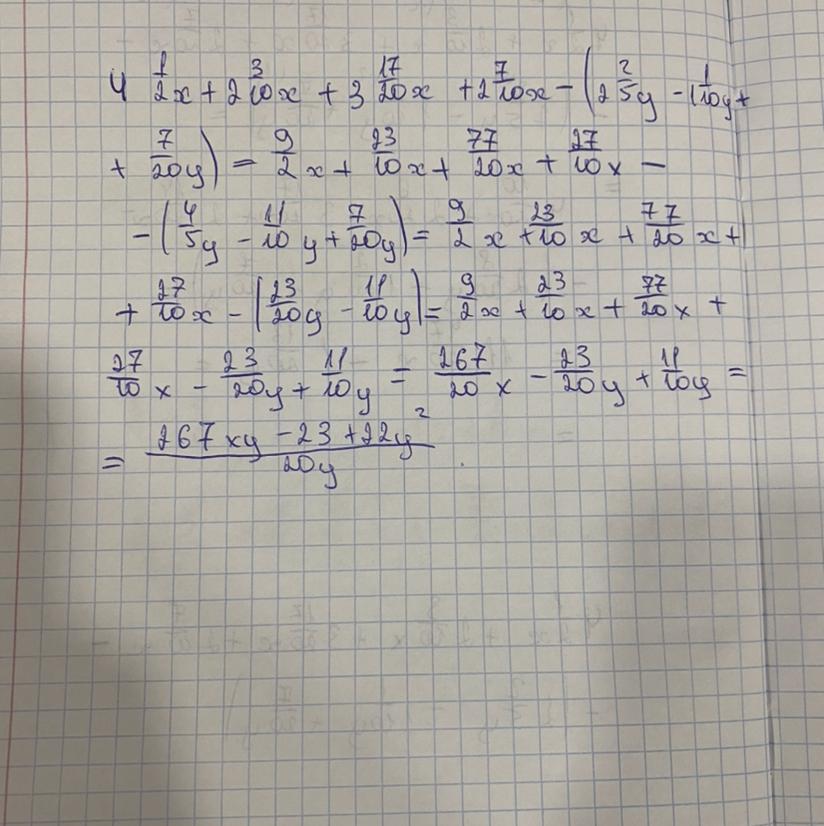 4 1/2x + 2 3/10x + 3 17/20x + 2 7/10x - (2 2/5y - 1 1/10y +
+ 7/20y) = 9/2 x + 23/10 x + 77/20 x + 27/10 x -
- (4/5y - 11/10 y + 7/20y) = 9/2 x + 23/10 x + 77/20 x +
+ 27/10 x - (23/20y - 11/10y) = 9/2 x + 23/10 x + 77/20 x +
27/10 x - 23/20y + 11/10y = 267/20 x - 23/20y + 11/10y =
= (267xy - 23 + 22y²)/20y .